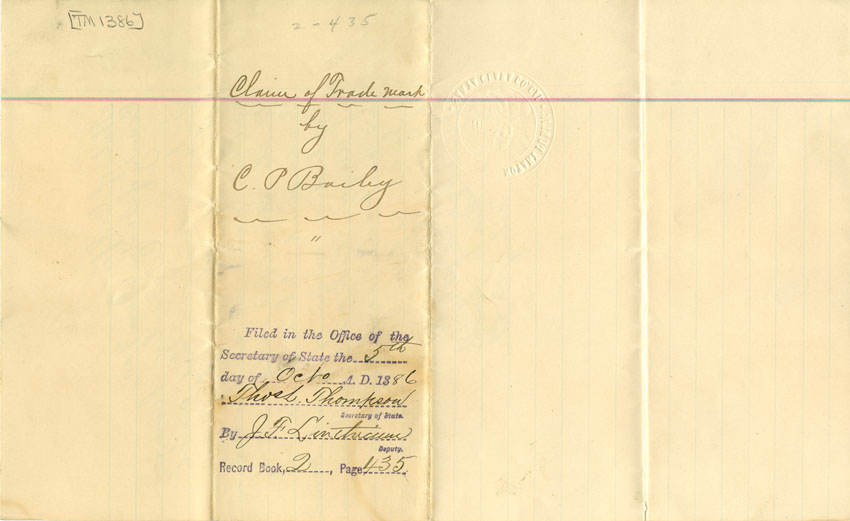 [TM 1386]
2-435
Claim of Trade Mark
by
C. P. Bailey
"
Filed in the Office of the
Secretary of State the 5th
day of Octo A. D. 1886
Thos L. Thompson
Secretary of State.
By J F
Deputy.
Record Book, 2, Page 435